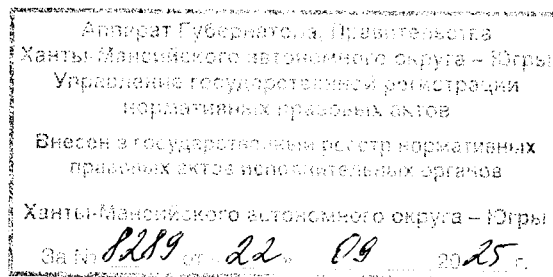 Аппарат Губернатора, Правительства
Ханты-Мансийского автономного округа – Югры
Управление государственной регистрации
нормативных правовых актов
Внесен в государственный реестр нормативных
правовых актов исполнительных органов
Ханты-Мансийского автономного округа – Югры
За № 8289 от « 22 » 09 2025 г.